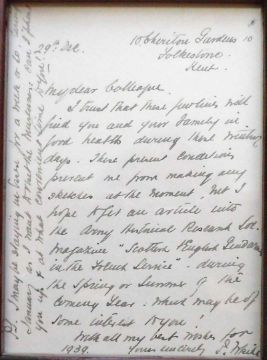 10 Cheriton Gardens
Folkestone
Kent.
29th Dec.
My dear Colleague,
I trust that these few lines will
find you and your family in
good health during these
days. These present conditions
prevent me from making any
sketches at the moment, but I
hope to fit an article into
the Army Historical Research Soc.
magazine "Scottish English
in the French Service" during
the Spring or Summer of the
coming Year. which may be of
some interest to you!
With all my best wishes for
1939. Yours sincerely
P.S. I may be staying in town for a week or so in
January
you up at most convenient time to you!